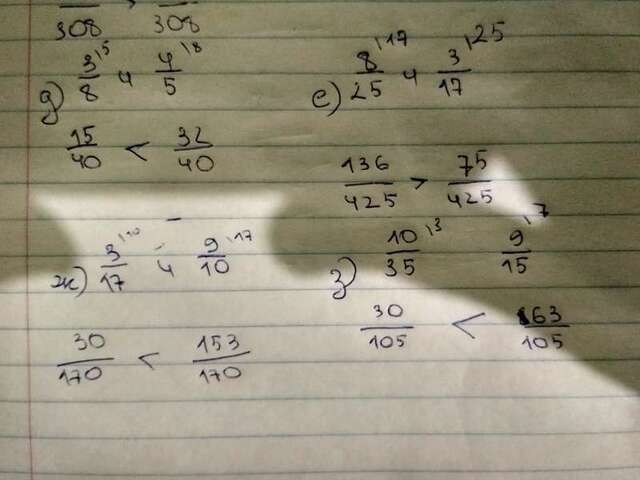 308 308
д) 3/8 \5 и 4/5 \8
15/40 < 32/40
е) 8/25 \17 и 3/17 \25
136/425 > 75/425
ж) 3/17 \10 и 9/10 \17
30/170 < 153/170
з) 10/35 \3 9/15 \7
30/105 < 63/105